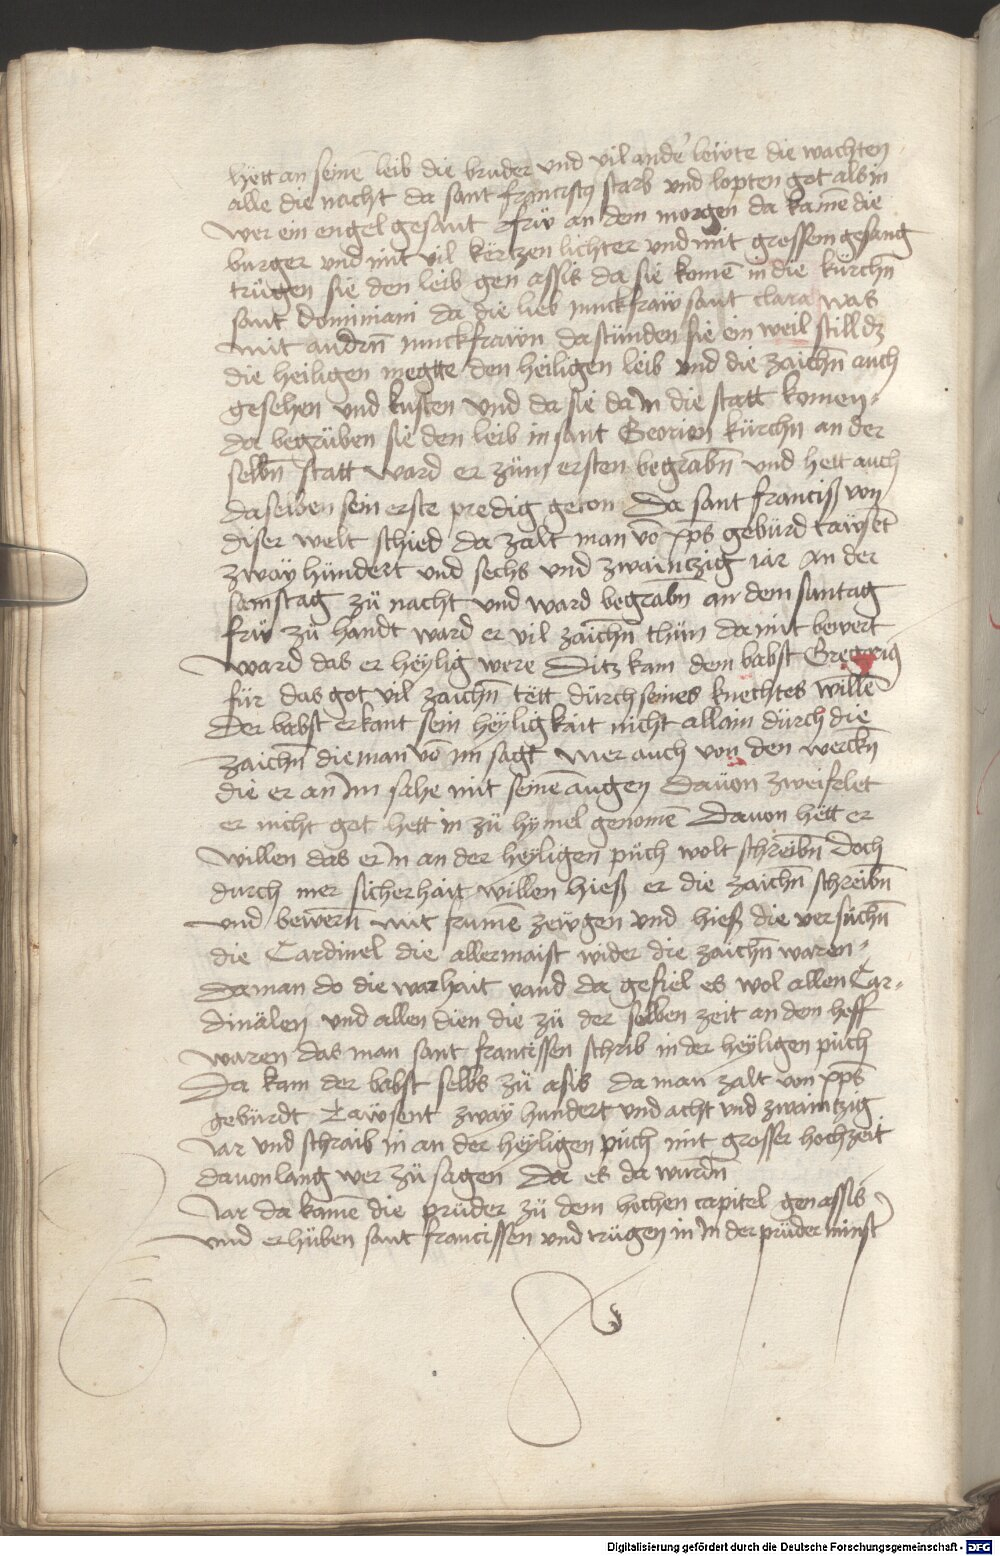 hett an seinē leib die bruder vnd vil ande' leẅte die wachten
alle die nacht da sant franciscꝯ starb vnd lopten got als in
wer ein engel gesant frü an dem morgen da kamē die
burger vnd mit vil kërtzen lichter vnd mit grossem gesang
trügen sie den leib gen assis da sie komē in die kürchn̄
sant domimani da die lieb iunckfraẅ sant clara was
mit andrn̄ iunckfraẅn da stünden sie ein weil still dz
die heiligen megtte den heiligen leib vnd die zaichn̄ auch
gesehen vnd kusten vnd da sie da in die statt komen
da begrüben sie den leib in sant Georien kürchn an der
selbn̄ statt ward er züm ersten begrabn̄ vnd hett auch
daselben sein erste predig geton Da sant franciß von
diser welt schied da zalt man vō xp̄s gebürd taẅsēt
zwaÿ hündert vnd sechs vnd zwaintzig iar an der
samstag zü nacht vnd ward begrabn̄ an dem suntag
frü zü handt ward er vil zaichn̄ thün da mit bewert
ward das er heÿlig were Ditz kam dem babst Gregoriꝯ
für das got vil zaichn̄ tëtt dürch seines knechtes willē
Der babst erkant sein heÿligkait nicht allain dürch die
zaichn̄ die man vō im sagt mer auch von den werckn̄
die er an im sahe mit seinē augen dauon zweifelet
er nicht got hett in zü hÿmel genomē Dauon hëtt er
willen das er in an der heÿligen püch wolt schreibn̄ doch
durch mer sicherhait willen hieß er die zaichn̄ schreibn̄
vnd bewern̄ mit frumē zewgen vnd hieß die versüchn̄
die Cardinel die allermaist wider die zaichn̄ waren
Da man do die warhait vand da gefiel es wol allen Car-
dinälen vnd allen dien die zü der selben zeit an dem heff
waren das man sant francissen schrib in der heÿligen püch
Da kam der babst selbs zü asis da man zalt von xp̄s
gebürdt Taẅsent zwaÿ hundert vnd acht vnd zwaintzig
Jar vnd schraib in an der heÿligen püch mit grosser hochzeit
dauon lang wer zü sagen Da es da wurdn̄
Jar da kamē die prüder zü dem hochen capitel gen assis
vnd erhüben sant francissen vnd trügen in in der prüder minst
Digitalisierung gefördert durch die Deutsche Forschungsgemeinschaft - DFG